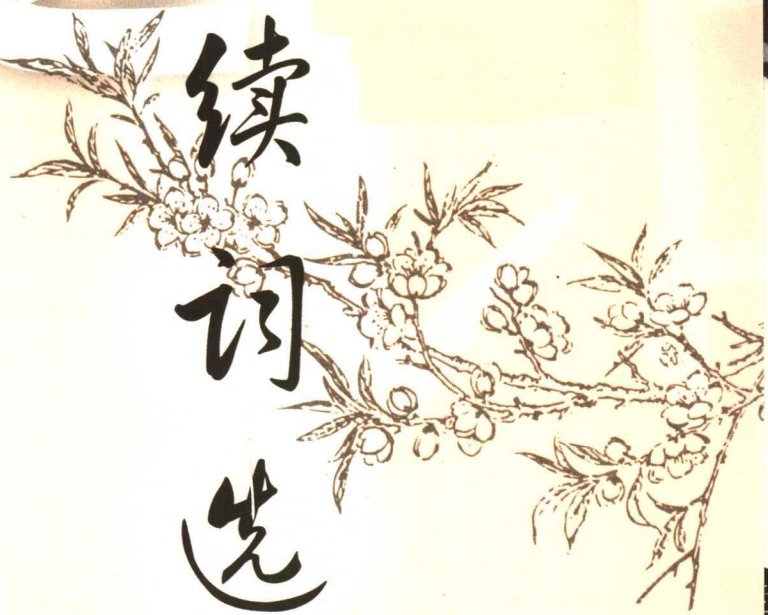 续词选